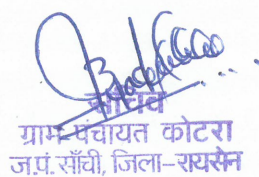 सचिव
ग्राम-पंचायत कोटरा
ज.पं. साँची, जिला-रायसेन